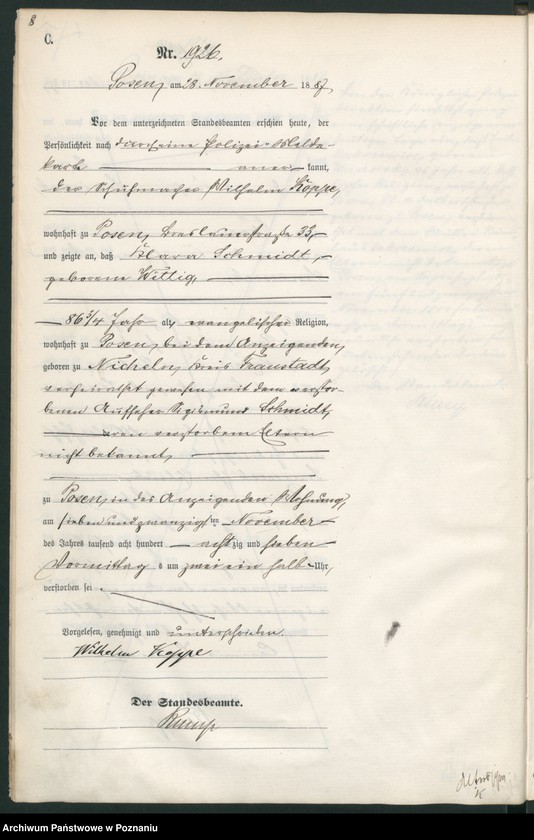 8
C.
Nr. 1926.
Posen, am 28. November 1887
Vor dem unterzeichneten Standesbeamten erschien heute, der
Persönlichkeit nach durch eine Polizei-Melde-
karte aner kannt,
der Schuhmacher Wilhelm Koppe,
wohnhaft zu Posen, Breslauerstraße 33,
und zeigte an, daß Klara Schmidt,
geborene Wittig,
86 3/4 Jahr alt, evangelischer Religion,
wohnhaft zu Posen, bei dem Anzeigenden,
geboren zu Nicheln, Kreis Fraustadt,
verheirathet gewesen mit dem verstor-
benen Aufseher Sigismund Schmidt,
deren verstorbene Eltern
nicht bekannt,
zu Posen, in des Anzeigenden Wohnung,
am sieben und zwanzigsten November
des Jahres tausend acht hundert achtzig und sieben
Vormittags um zwei ein halb Uhr,
verstorben sei
Vorgelesen, genehmigt und unterschrieben.
Wilhelm Koppe
Der Standesbeamte.
Archiwum Państwowe w Poznaniu